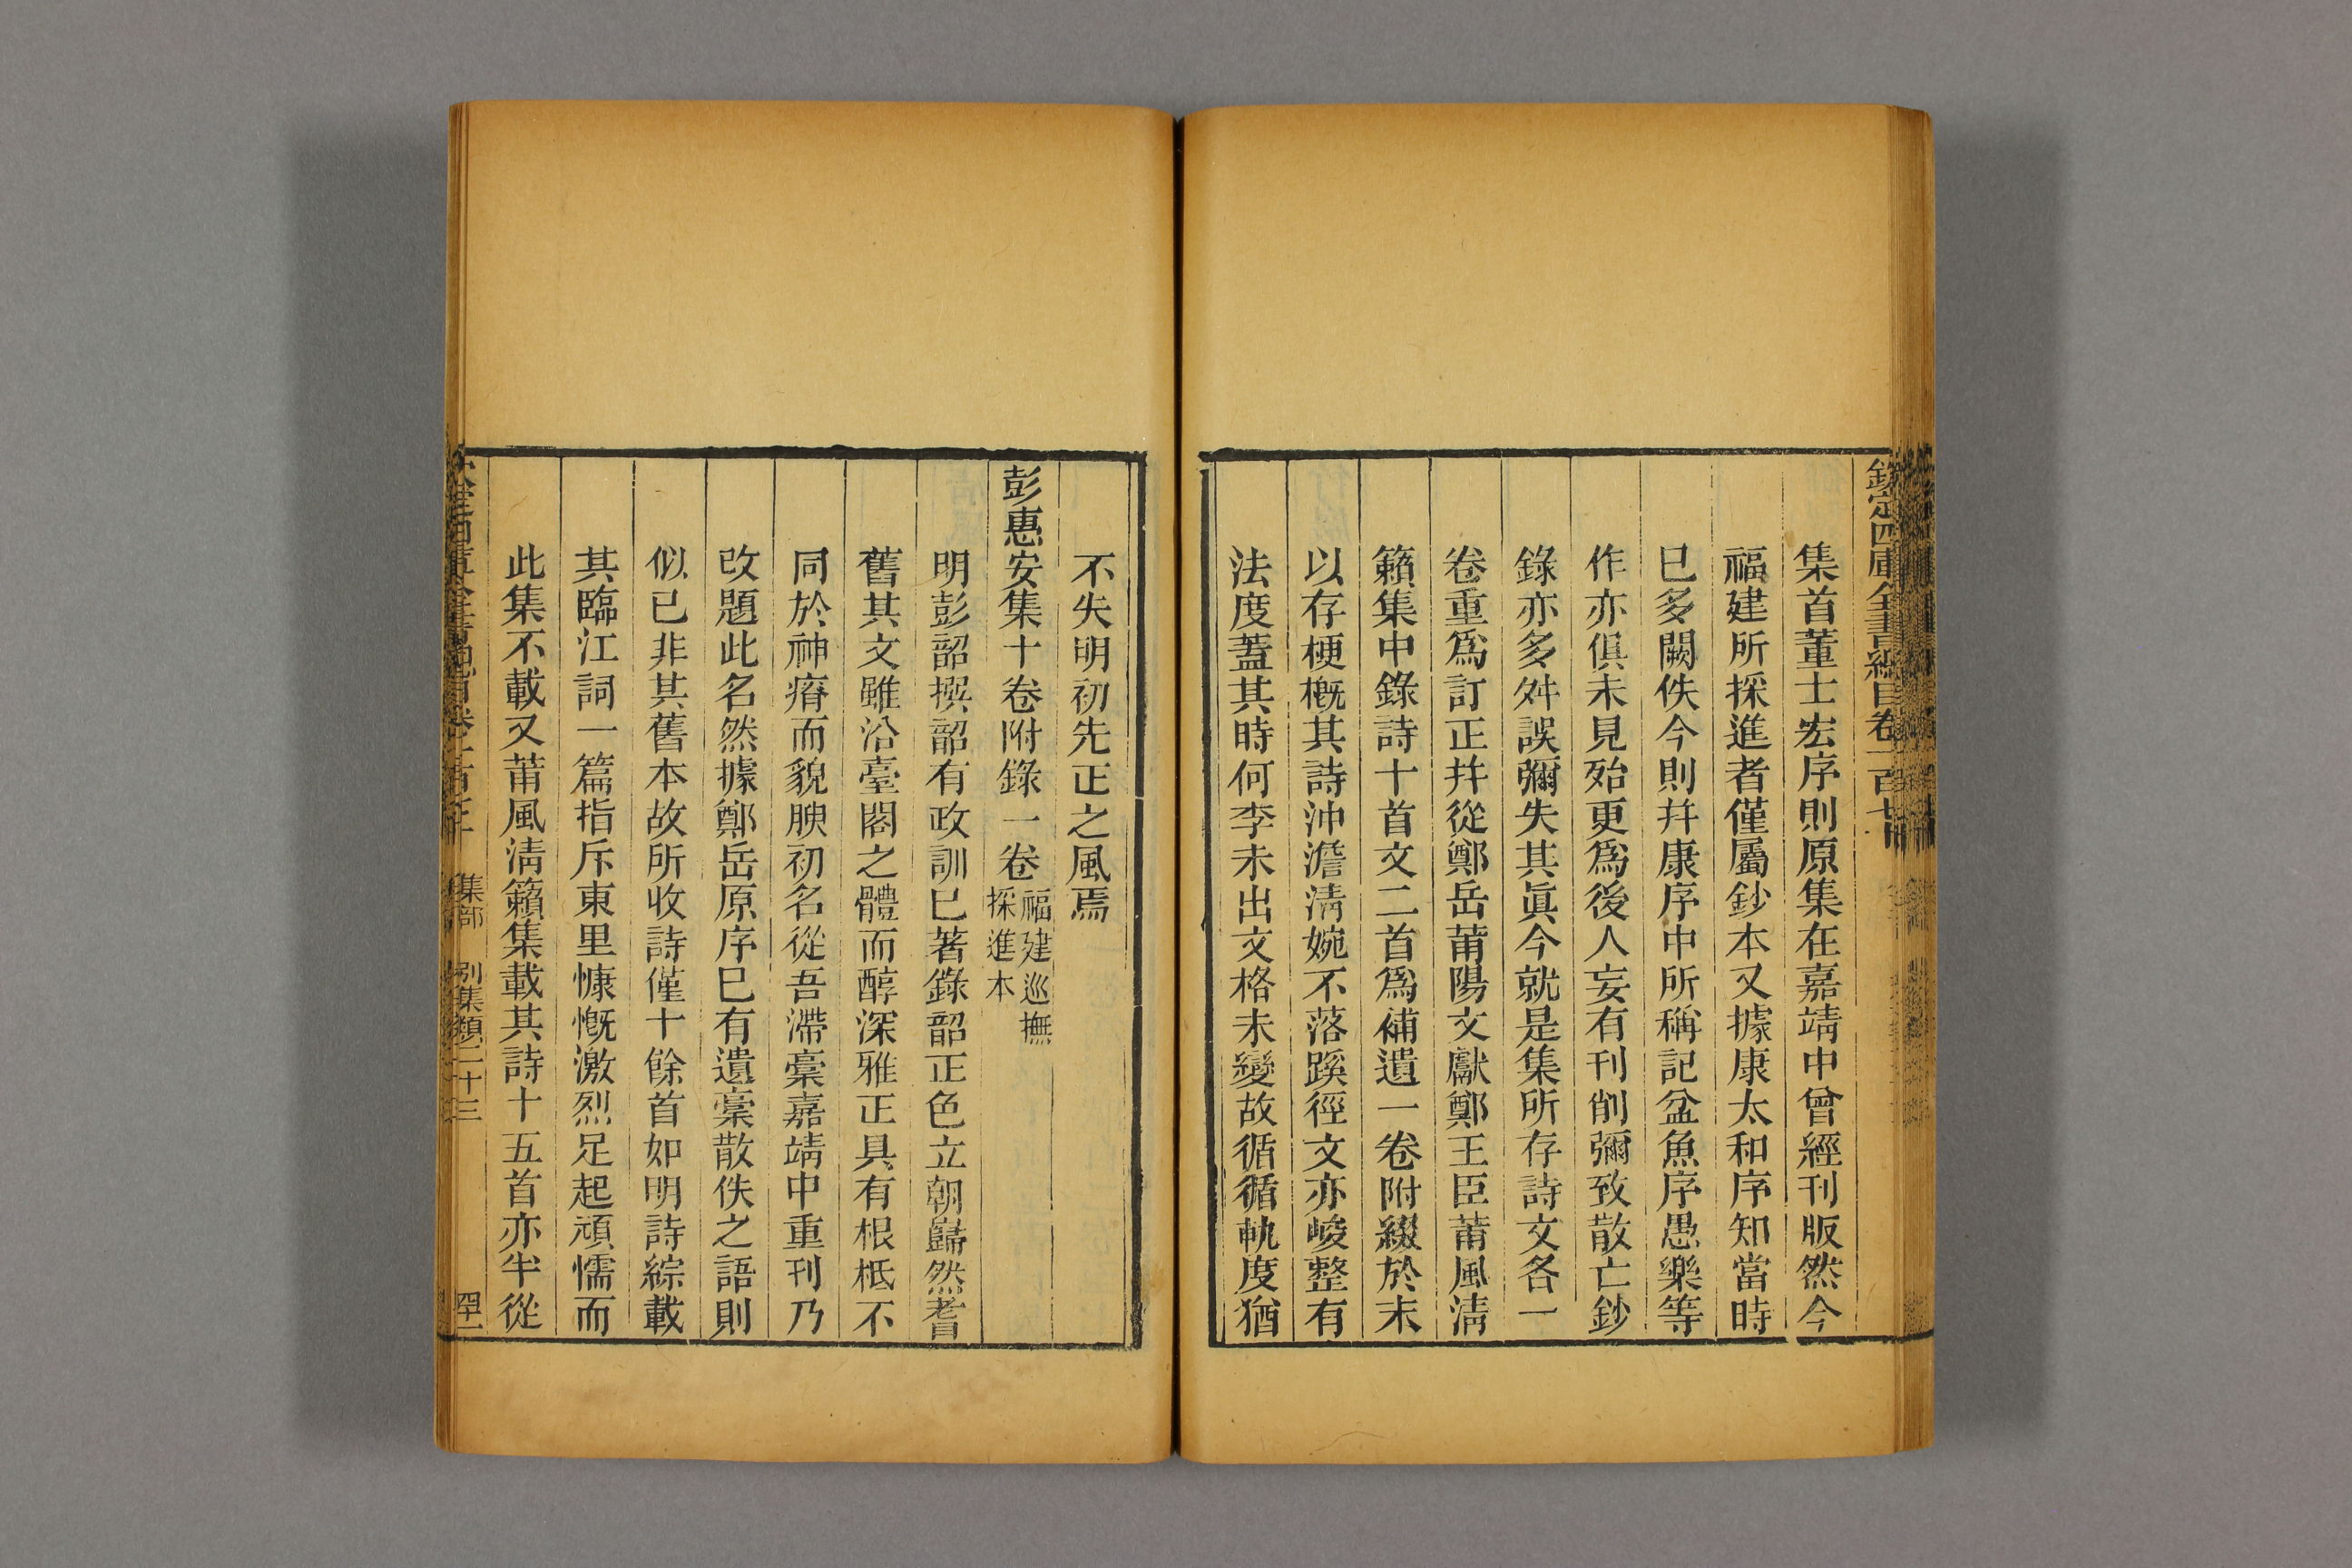 欽定四庫全書總目卷一百七十
集首董士宏序則原集在嘉靖中曾經刊版然今
福建所採進者僅屬鈔本又據康太和序知當時
已多闕佚今則幷康序中所稱記盆魚序愚樂等
作亦俱未見殆更爲後人妄有刊削彌致散亡鈔
錄亦多舛誤彌失其眞今就是集所存詩文各一
卷重爲訂正幷從鄭岳莆陽文獻鄭王臣莆風淸
籟集中錄詩十首文二首爲補遺一卷附綴於末
以存梗槪其詩沖澹淸婉不落蹊徑文亦峻整有
法度蓋其時何李未出文格未變故循循軌度猶
不失明初先正之風焉
彭惠安集十卷附錄一卷福建巡撫採進本
明彭韶撰韶有政訓已著錄韶正色立朝巋然耆
舊其文雖沿臺閣之體而醇深雅正具有根柢不
同於神瘠而貌腴初名從吾滯稾嘉靖中重刊乃
改題此名然據鄭岳原序已有遺稾散佚之語則
似已非其舊本故所收詩僅十餘首如明詩綜載
其臨江詞一篇指斥東里慷慨激烈足起頑懦而
此集不載又莆風淸籟集載其詩十五首亦半從
集部 別集類二十三 四十一